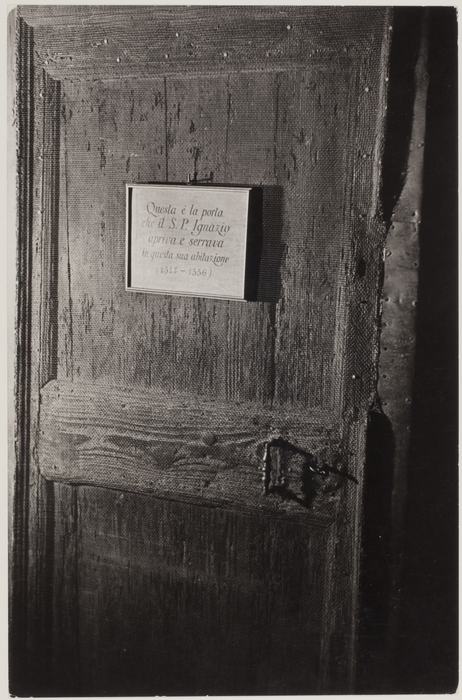 Questa è la porta
che il S. P. Ignazio
apriva e serrava
in questa sua abitazione
(1544 - 1556)